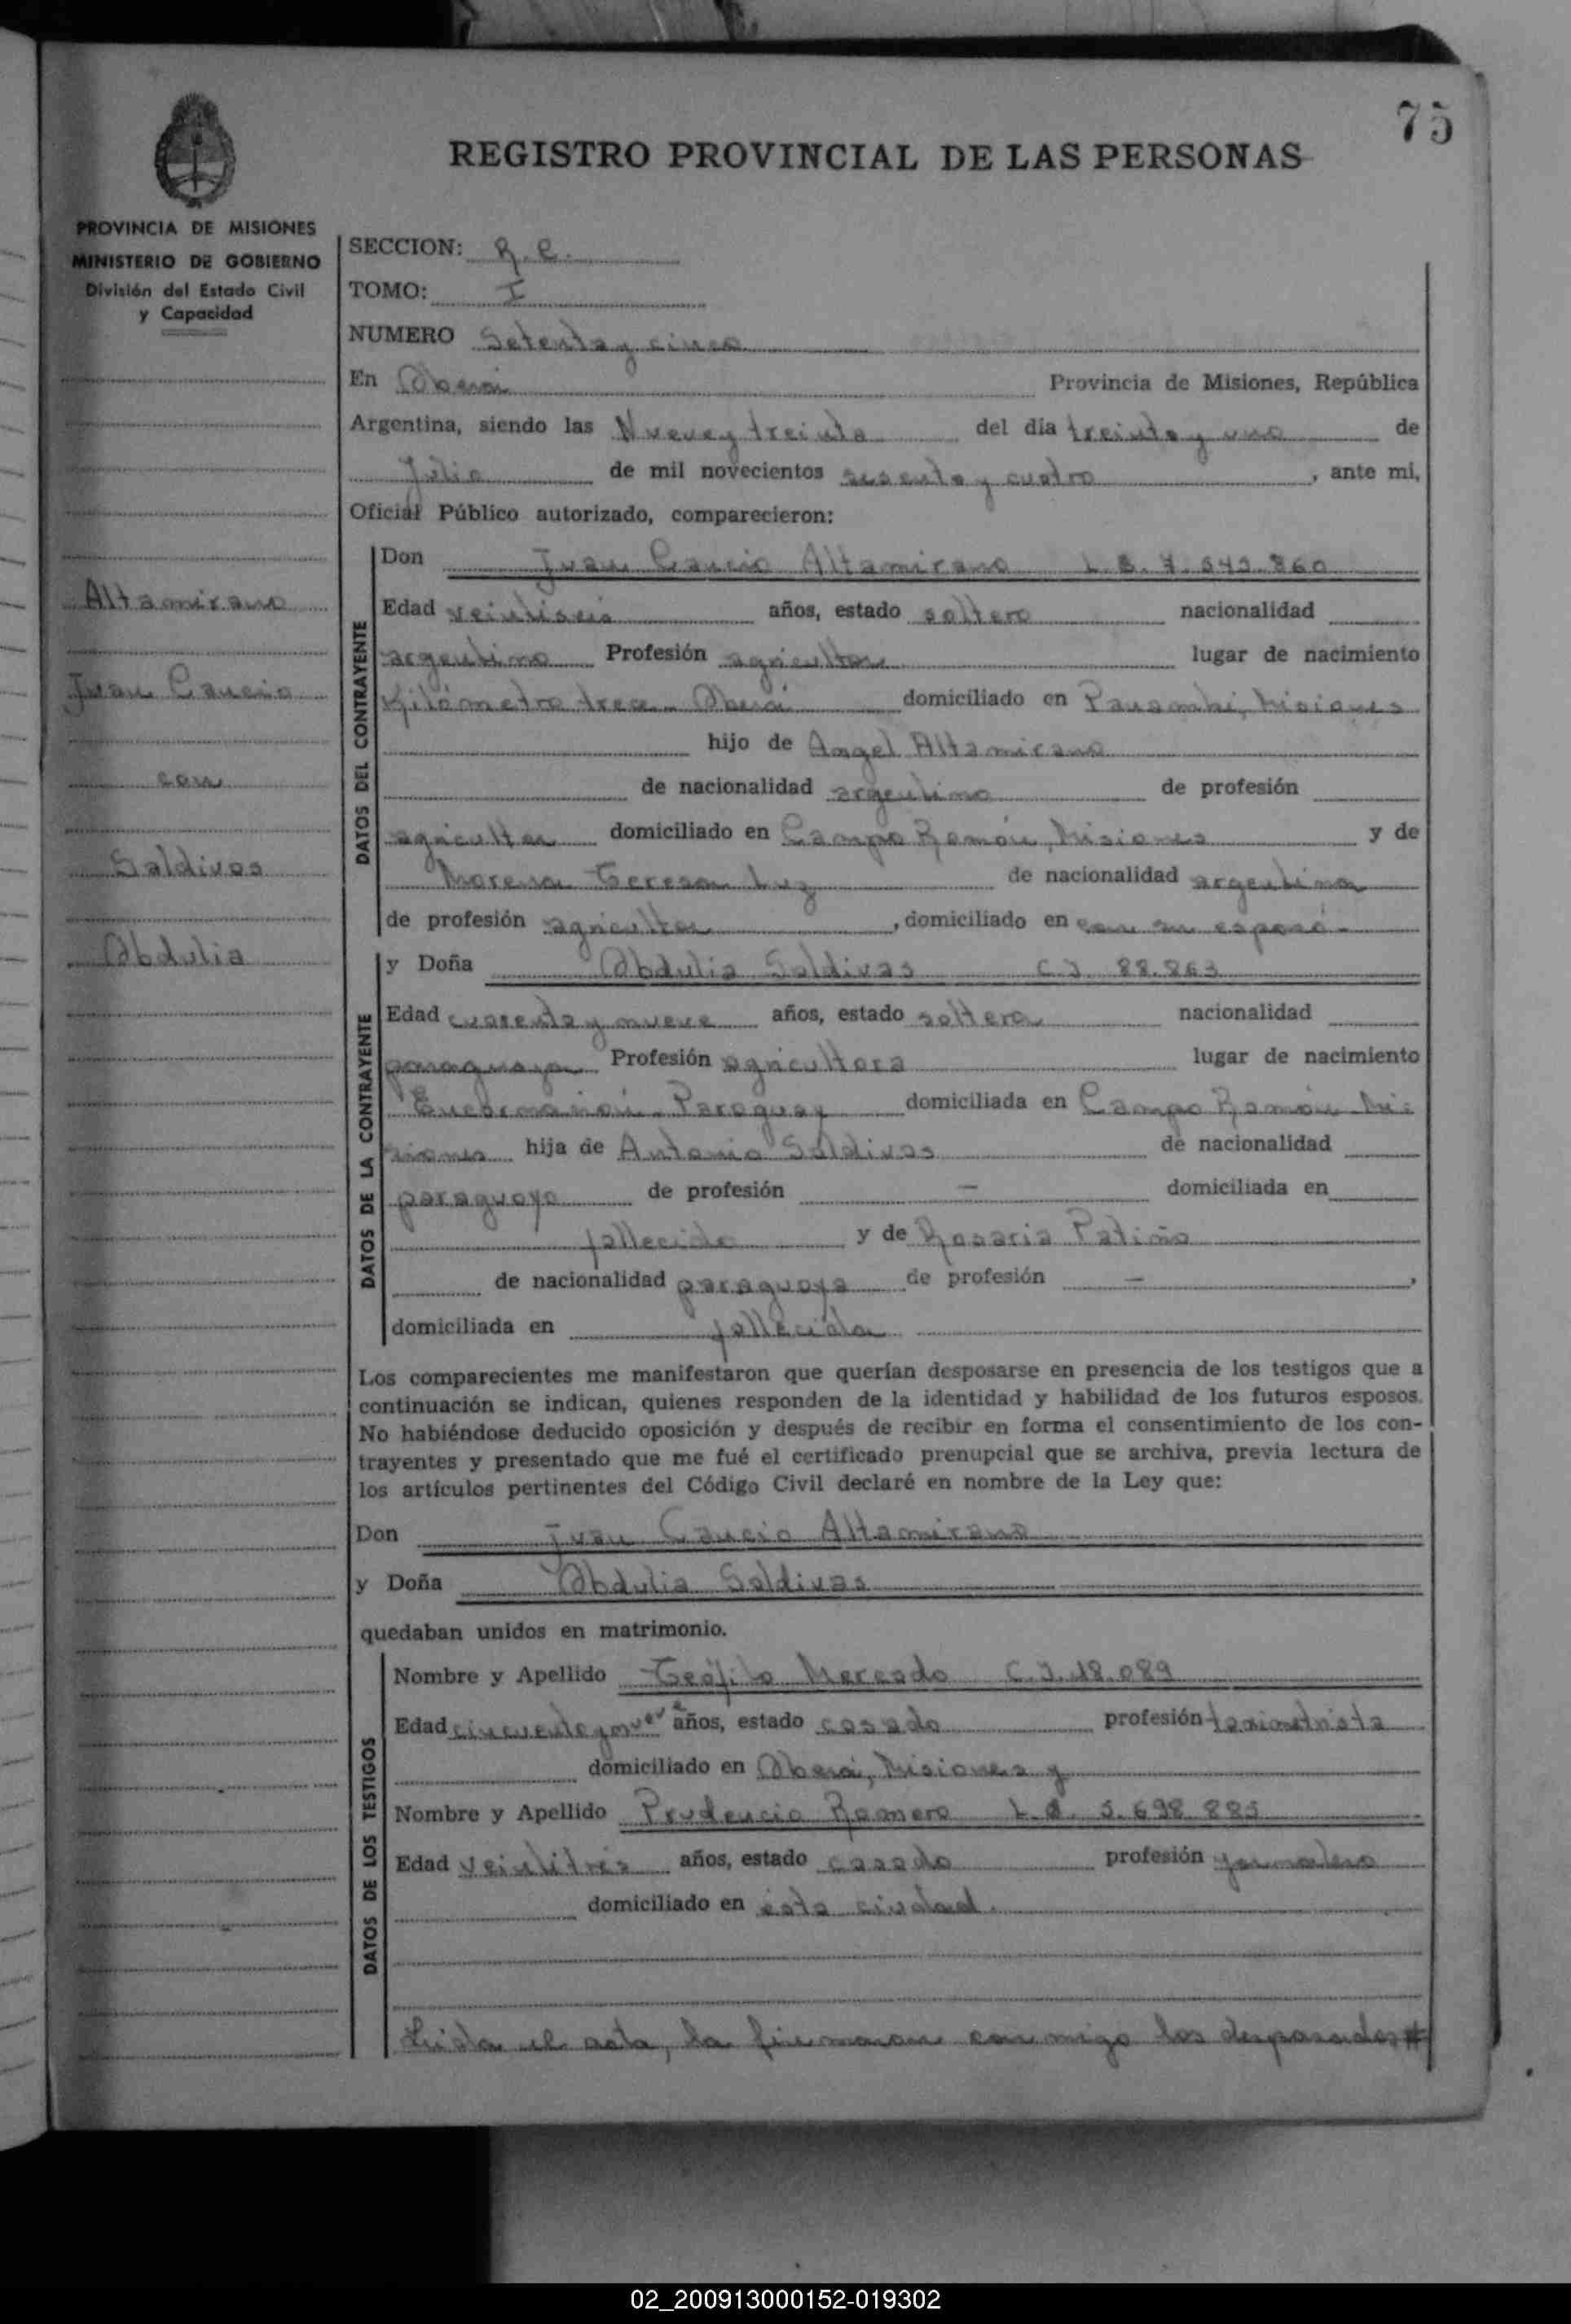 75
REGISTRO PROVINCIAL DE LAS PERSONAS
PROVINCIA DE MISIONES
MINISTERIO DE GOBIERNO
División del Estado Civil
y Capacidad
Altamirano
Juan Cancio
con
Saldivas
Obdulia
SECCION: R. C.
TOMO: I
NUMERO Setenta y cinco
En Oberá Provincia de Misiones, República
Argentina, siendo las Nueve y treinta del día treinta y uno de
Julio de mil novecientos sesenta y cuatro, ante mi,
Oficial Público autorizado, comparecieron:
DATOS DEL CONTRAYENTE
Don Juan Cancio Altamirano L. E. 7.543.860
Edad veintiseis años, estado soltero nacionalidad
argentino Profesión agricultor lugar de nacimiento
Kilómetro trece - Oberá domiciliado en Panambi, Misiones
hijo de Angel Altamirano
de nacionalidad argentino de profesión
agricultor domiciliado en Campo Ramón, Misiones y de
Morena Teresa Luz de nacionalidad argentina
de profesión agricultor, domiciliado en con su esposo.-
DATOS DE LA CONTRAYENTE
y Doña Obdulia Saldivas C.I. 88.863
Edad cuarenta y nueve años, estado soltera nacionalidad
paraguaya Profesión agricultora lugar de nacimiento
Encarnación - Paraguay domiciliada en Campo Ramón Mi-
siones hija de Antonio Saldivas de nacionalidad
paraguayo de profesión — domiciliada en
fallecido y de Rosaria Patiño
de nacionalidad paraguaya de profesión —,
domiciliada en fallecida
Los comparecientes me manifestaron que querían desposarse en presencia de los testigos que a
continuación se indican, quienes responden de la identidad y habilidad de los futuros esposos.
No habiéndose deducido oposición y después de recibir en forma el consentimiento de los con-
trayentes y presentado que me fué el certificado prenupcial que se archiva, previa lectura de
los artículos pertinentes del Código Civil declaré en nombre de la Ley que:
Don Juan Cancio Altamirano
y Doña Obdulia Saldivas
quedaban unidos en matrimonio.
DATOS DE LOS TESTIGOS
Nombre y Apellido Teófilo Mercado C.I. 18.089
Edad cincuenta y nueve años, estado casado profesión taximetrista
domiciliado en Oberá, Misiones y
Nombre y Apellido Prudencio Romero L. E. 5.698.885
Edad veintitrés años, estado casado profesión jornalero
domiciliado en ésta ciudad.
Leida el acta, la firmaron conmigo los desposados #
02_200913000152-019302